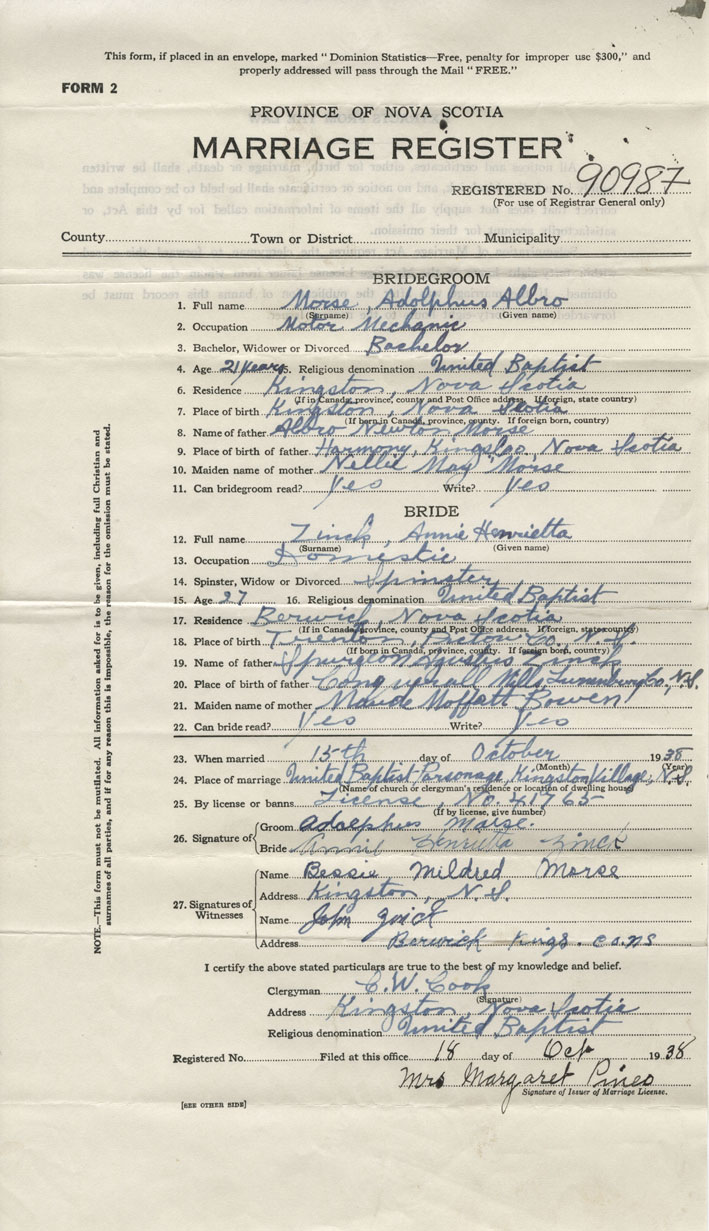 This form, if placed in an envelope, marked "Dominion Statistics—Free, penalty for improper use $300," and
properly addressed will pass through the Mail "FREE."
FORM 2
PROVINCE OF NOVA SCOTIA
MARRIAGE REGISTER
REGISTERED No. 90987
(For use of Registrar General only)
County Town or District Municipality
BRIDEGROOM
1. Full name Morse, Adolphus Albro
(Surname) (Given name)
2. Occupation Motor Mechanic
3. Bachelor, Widower or Divorced Bachelor
4. Age 21 years 5. Religious denomination United Baptist
6. Residence Kingston, Nova Scotia
(If in Canada, province, county and Post Office address. If foreign, state country)
7. Place of birth Kingston, Nova Scotia
(If born in Canada, province, county. If foreign born, country)
8. Name of father Albro Newton Morse
9. Place of birth of father Harmony, Kings Co, Nova Scotia
10. Maiden name of mother Nellie May Morse
11. Can bridegroom read? Yes Write? Yes
BRIDE
12. Full name Zinck, Annie Henrietta
(Surname) (Given name)
13. Occupation Domestic
14. Spinster, Widow or Divorced Spinster
15. Age 27 16. Religious denomination United Baptist
17. Residence Berwick, Nova Scotia
(If in Canada, province, county and Post Office address. If foreign, state country)
18. Place of birth Trenton, Pictou Co, N.S.
(If born in Canada, province, county. If foreign born, country)
19. Name of father Spurgeon Zinck
20. Place of birth of father Mills, Lunenburg Co., N.S.
21. Maiden name of mother Maude Moffatt Bowen
22. Can bride read? Yes Write? Yes
23. When married 15th day of October 1938
(Month) (Year)
24. Place of marriage United Baptist Parsonage, Kingston Village, N.S.
(Name of church or clergyman's residence or location of dwelling house)
25. By license or banns License, No. 41765
(If by license, give number)
26. Signature of Groom Adolphus Morse.
Bride Annie Henrietta Zinck
27. Signatures of Witnesses
Name Bessie Mildred Morse
Address Kingston, N.S.
Name John Zinck
Address Berwick Kings. Co. NS
I certify the above stated particulars are true to the best of my knowledge and belief.
Clergyman C. W. Cook
(Signature)
Address Kingston, Nova Scotia
Religious denomination United Baptist
Registered No. Filed at this office 18 day of Oct 1938
Mrs Margaret Pineo
Signature of Issuer of Marriage License.
[SEE OTHER SIDE]
NOTE.—This form must not be mutilated. All information asked for is to be given, including full Christian and
surnames of all parties, and if for any reason this is impossible, the reason for the omission must be stated.